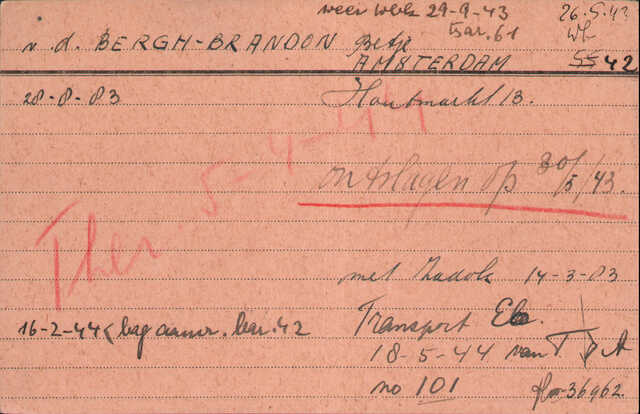 weer Wbk 29-9-43 26-5-43
bar. 61 Wbk
v. d. BERGH-BRANDON Betje 55 42
AMSTERDAM
28-8-83 Houtmarkt 13.
ontslagen op 30/5/43
Ther. 5-4-44
met Zadok 14-3-83
16-2-44 bag aanw. bar. 42 Transport Eb.
18-5-44 van T A
no 101 36962.